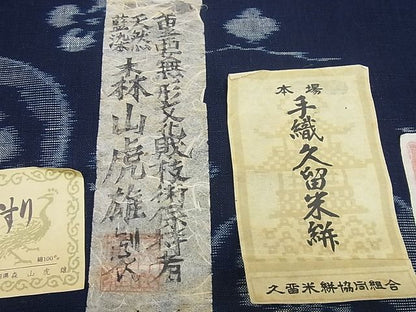 重要無形文化財技術保持者
天然
藍染
森山虎雄
本場
手織久留米絣
久留米絣協同組合
すり
綿100%
森山虎雄